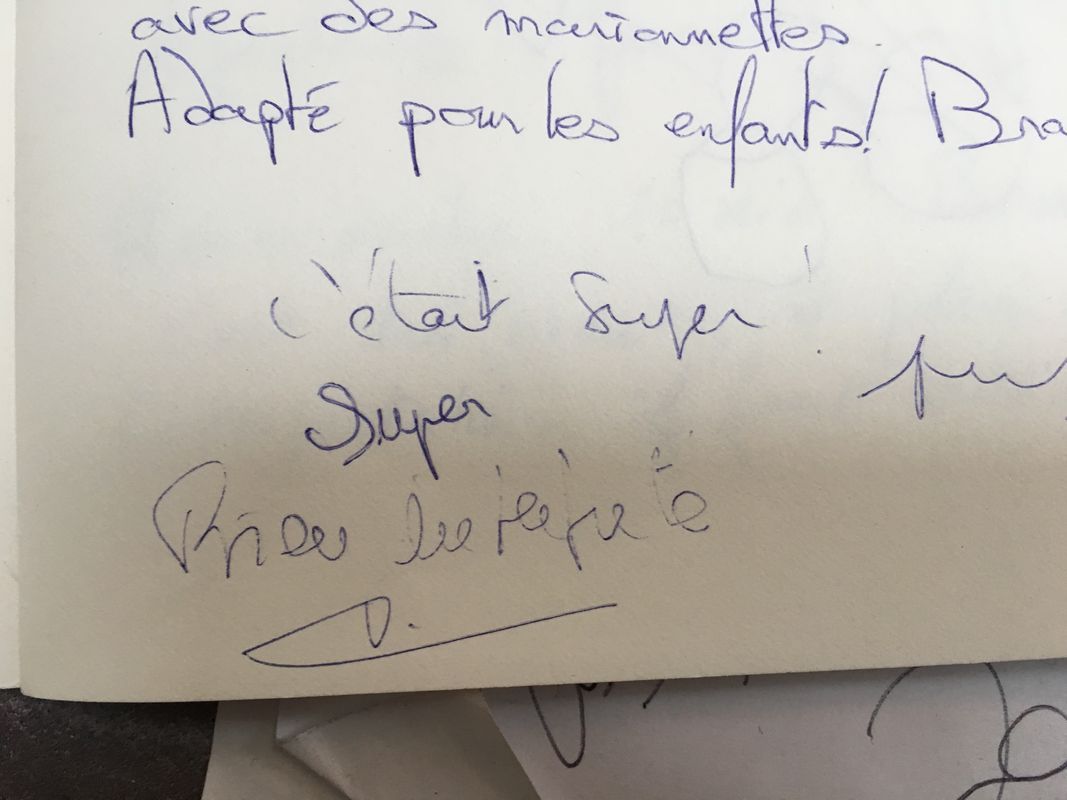 avec des marionnettes.
Adapté pour les enfants! Bra
c'était super!
super
Bien